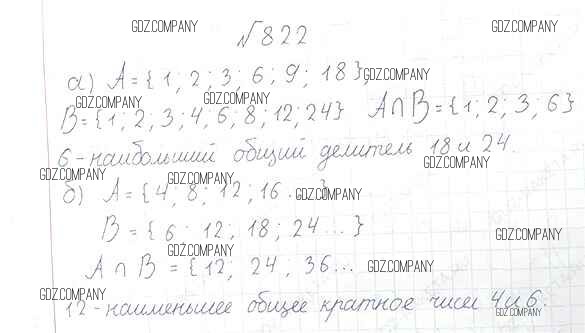 №822
а) A = {1; 2; 3; 6; 9; 18};
B = {1; 2; 3; 4; 6; 8; 12; 24} A∩B = {1; 2; 3; 6}
6 - наибольший общий делитель 18 и 24.
б) A = {4, 8; 12; 16 ... }
B = {6; 12; 18; 24 ... }
A ∩ B = {12, 24, 36...
12 - наименьшее общее кратное чисел 4 и 6.
GDZ.COMPANY
GDZ.COMPANY
GDZ.COMPANY
GDZ.COMPANY
GDZ.COMPANY
GDZ.COMPANY
GDZ.COMPANY
GDZ.COMPANY
GDZ.COMPANY
GDZ.COMPANY
GDZ.COMPANY
GDZ.COMPANY
GDZ.COMPANY
GDZ.COMPANY